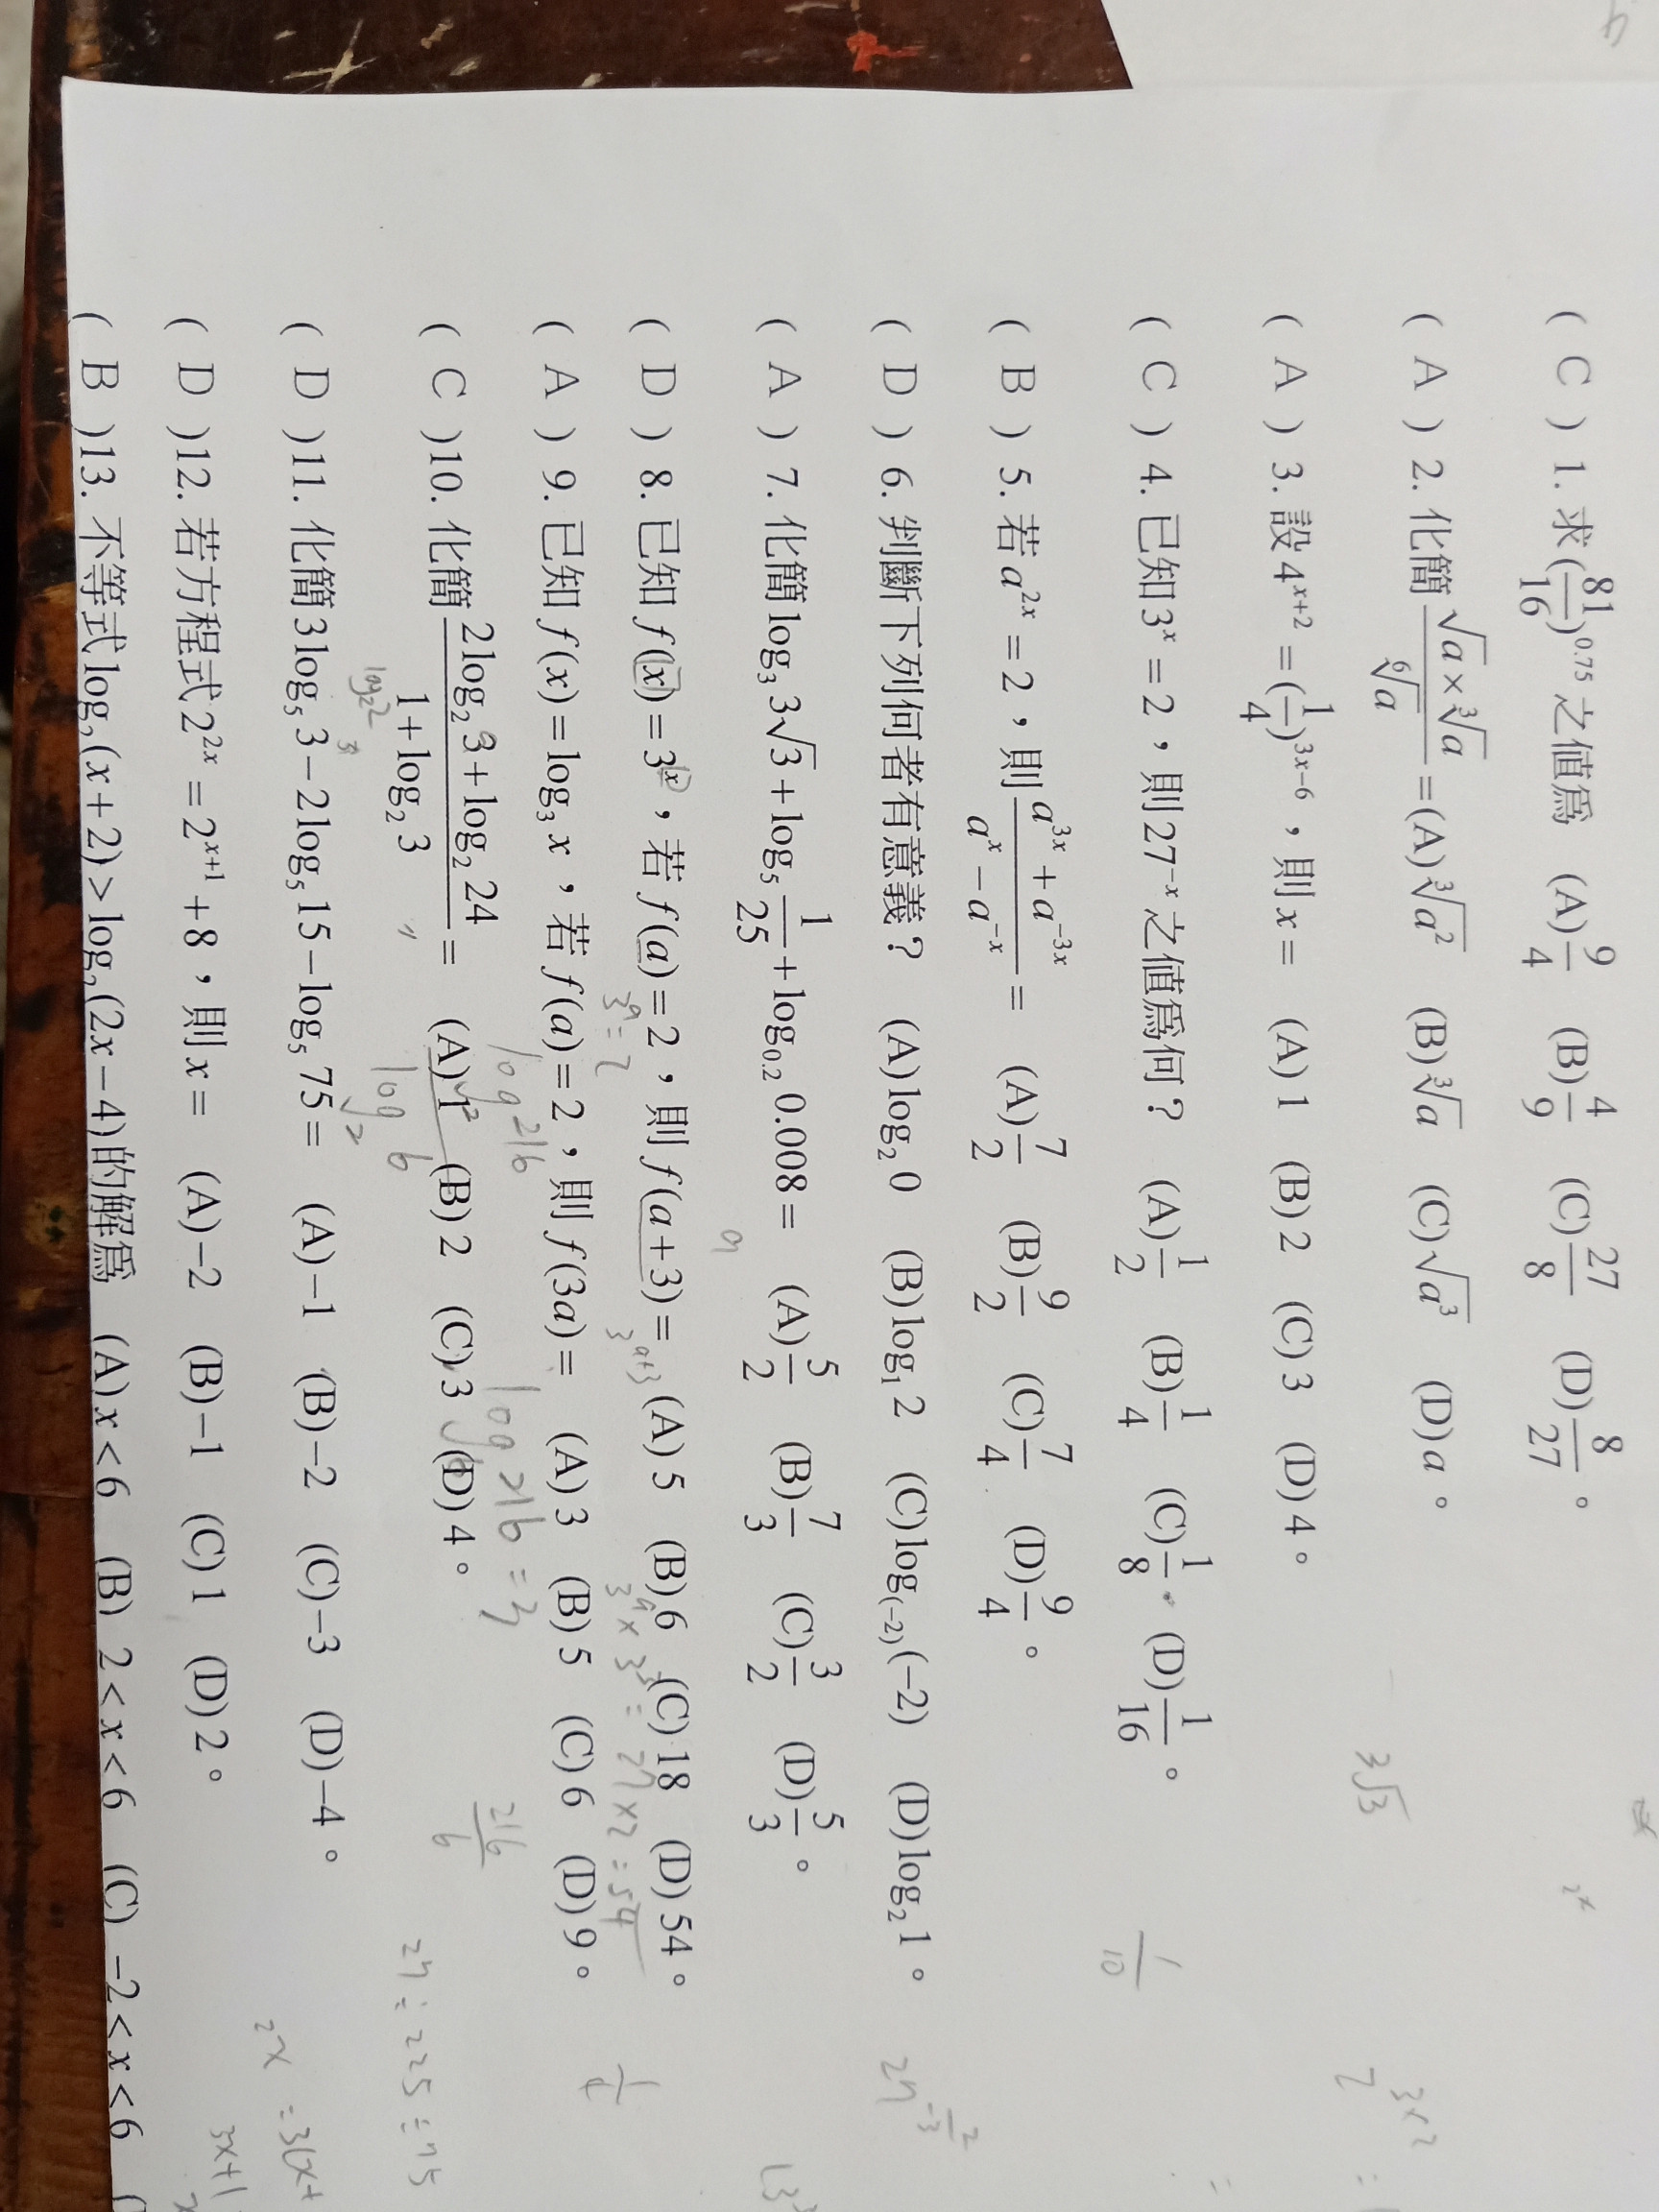 ( C ) 1. 求(81/16)^0.75 之值為 (A) 9/4 (B) 4/9 (C) 27/8 (D) 8/27 。
( A ) 2. 化簡 (√a × ∛a)/⁶√a = (A) ∛a² (B) ∛a (C) √a³ (D) a 。
( A ) 3. 設 4^(x+2) = (1/4)^(3x−6) ,則 x = (A) 1 (B) 2 (C) 3 (D) 4 。
( C ) 4. 已知 3^x = 2 ,則 27^(−x) 之值為何? (A) 1/2 (B) 1/4 (C) 1/8 (D) 1/16 。
( B ) 5. 若 a^(2x) = 2 ,則 (a^(3x) + a^(−3x))/(a^x − a^(−x)) = (A) 7/2 (B) 9/2 (C) 7/4 (D) 9/4 。
( D ) 6. 判斷下列何者有意義? (A) log₂ 0 (B) log₁ 2 (C) log₍₋₂₎(−2) (D) log₂ 1 。
( A ) 7. 化簡 log₃ 3√3 + log₅ 1/25 + log₀.₂ 0.008 = (A) 5/2 (B) 7/3 (C) 3/2 (D) 5/3 。
( D ) 8. 已知 f(x) = 3^x ,若 f(a) = 2 ,則 f(a+3) = (A) 5 (B) 6 (C) 18 (D) 54 。
3^a = 2 3^(a+3) 3^a × 3³ = 27×2 = 54
( A ) 9. 已知 f(x) = log₃ x ,若 f(a) = 2 ,則 f(3a) = (A) 3 (B) 5 (C) 6 (D) 9 。
log 216 log 216 = 3
( C )10. 化簡 (2log₂ 3 + log₂ 24)/(1 + log₂ 3) = (A) 1 (B) 2 (C) 3 (D) 4 。
log₂2 log₂ 6 216/6
( D )11. 化簡 3log₅ 3 − 2log₅ 15 − log₅ 75 = (A) −1 (B) −2 (C) −3 (D) −4 。
27 ÷ 225 ÷ 75
( D )12. 若方程式 2^(2x) = 2^(x+1) + 8 ,則 x = (A) −2 (B) −1 (C) 1 (D) 2 。
( B )13. 不等式 log₂(x+2) > log₂(2x−4) 的解為 (A) x < 6 (B) 2 < x < 6 (C) −2 < x < 6